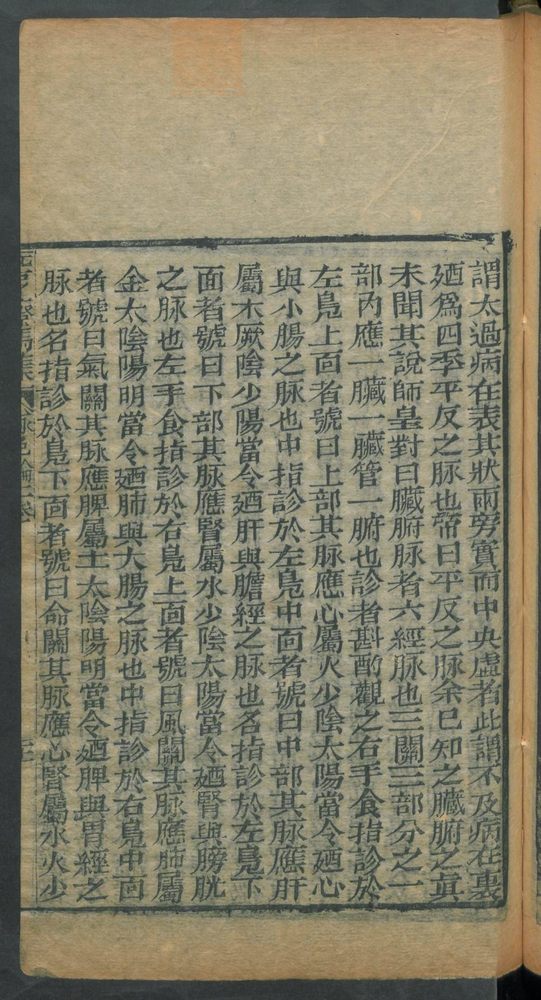 謂太過病在表其狀兩旁實而中央虛者此謂不及病在裏
廼爲四季平反之脉也帝曰平反之脉余已知之臟腑之眞
未聞其說師皇對曰臟腑脉者六經脉也三關三部分之一
部內應一臟一臟管一腑也診者斟酌觀之右手食指診於
左鳬上面者號曰上部其脉應心屬火少陰太陽當令廼心
與小腸之脉也中指診於左鳬中面者號曰中部其脉應肝
屬木厥陰少陽當令廼肝與膽經之脉也名指診於左鳬下
面者號曰下部其脉應腎屬水少陰太陽當令廼腎與膀胱
之脉也左手食指診於右鳬上面者號曰風關其脉應肺屬
金太陰陽明當令廼肺與大腸之脉也中指診於右鳬中面
者號曰氣關其脉應脾屬土太陰陽明當令廼脾與胃經之
脉也名指診於鳬下面者號曰命關其脉應心腎屬水火少
脉色論 卷